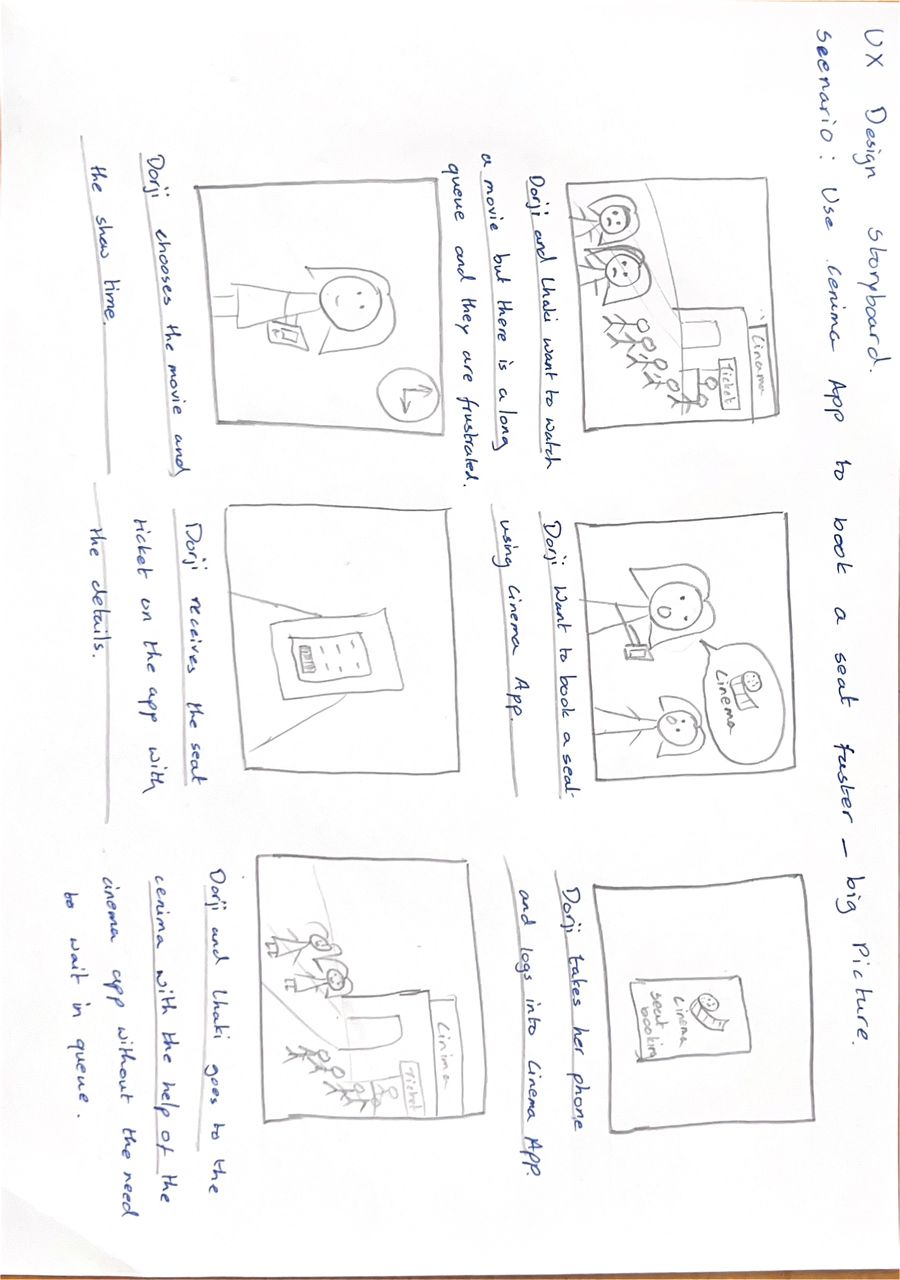 UX Design Storyboard.
Scenario: Use Cenima App to book a seat faster - big Picture.
Cinama
Ticket
Dorji and Lhaki want to watch
a movie but there is a long
queue and they are frustrated.
Cinema
Dorji Want to book a seat
using Cinema App.
Cinema
seat
booking
Dorji takes her phone
and logs into Cinema App.
Dorji chooses the movie and
the show time.
Dorji receives the seat
ticket on the app with
the details.
Cinima
Ticket
Dorji and Lhaki goes to the
cenima with the help of the
cinema app without the need
to wait in queue.